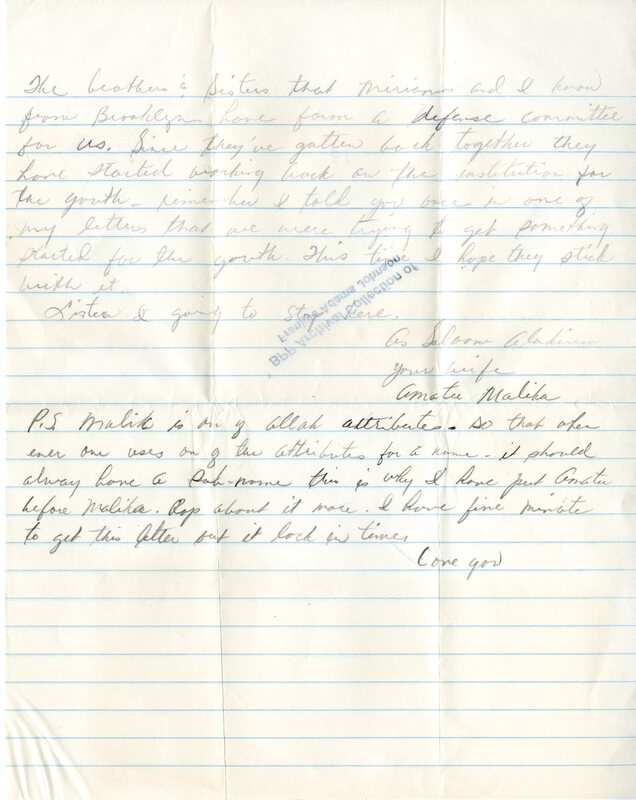 The brothers & Sisters that Miriam and I know
from Brooklyn have form a defense committee
for us. Since they've gotten back together they
have started working back on the institution for
the youth. remember I told you once in one of
my letters that we were trying to get something
started for the youth. This time I hope they stick
with it.
Listen I going to stop here.
As Salaam Alakium
your wife
Amatu Malika
P.S Malik is on of allah attributes. so that when
ever one uses on of the attributes for a name - it should
alway have a sub-name this is why I have put Amatu
before Malika. Rap about it more. I have five minute
to get this letter out it lock in times
Love you
BPP Archival Collection of
Frankye Adams Johnson